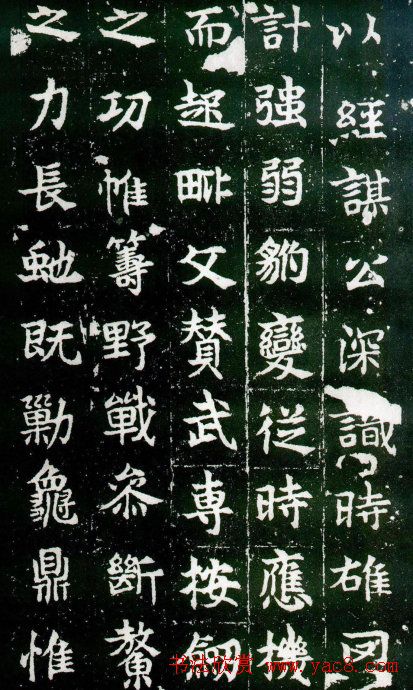 以經謀公深識時雄
計強弱豹變從時應機
而起毗文贊武專按劒
之功帷籌野戰叅斷鰲
之力長虵既勦龜鼎惟
书法欣赏 www.yac8.com